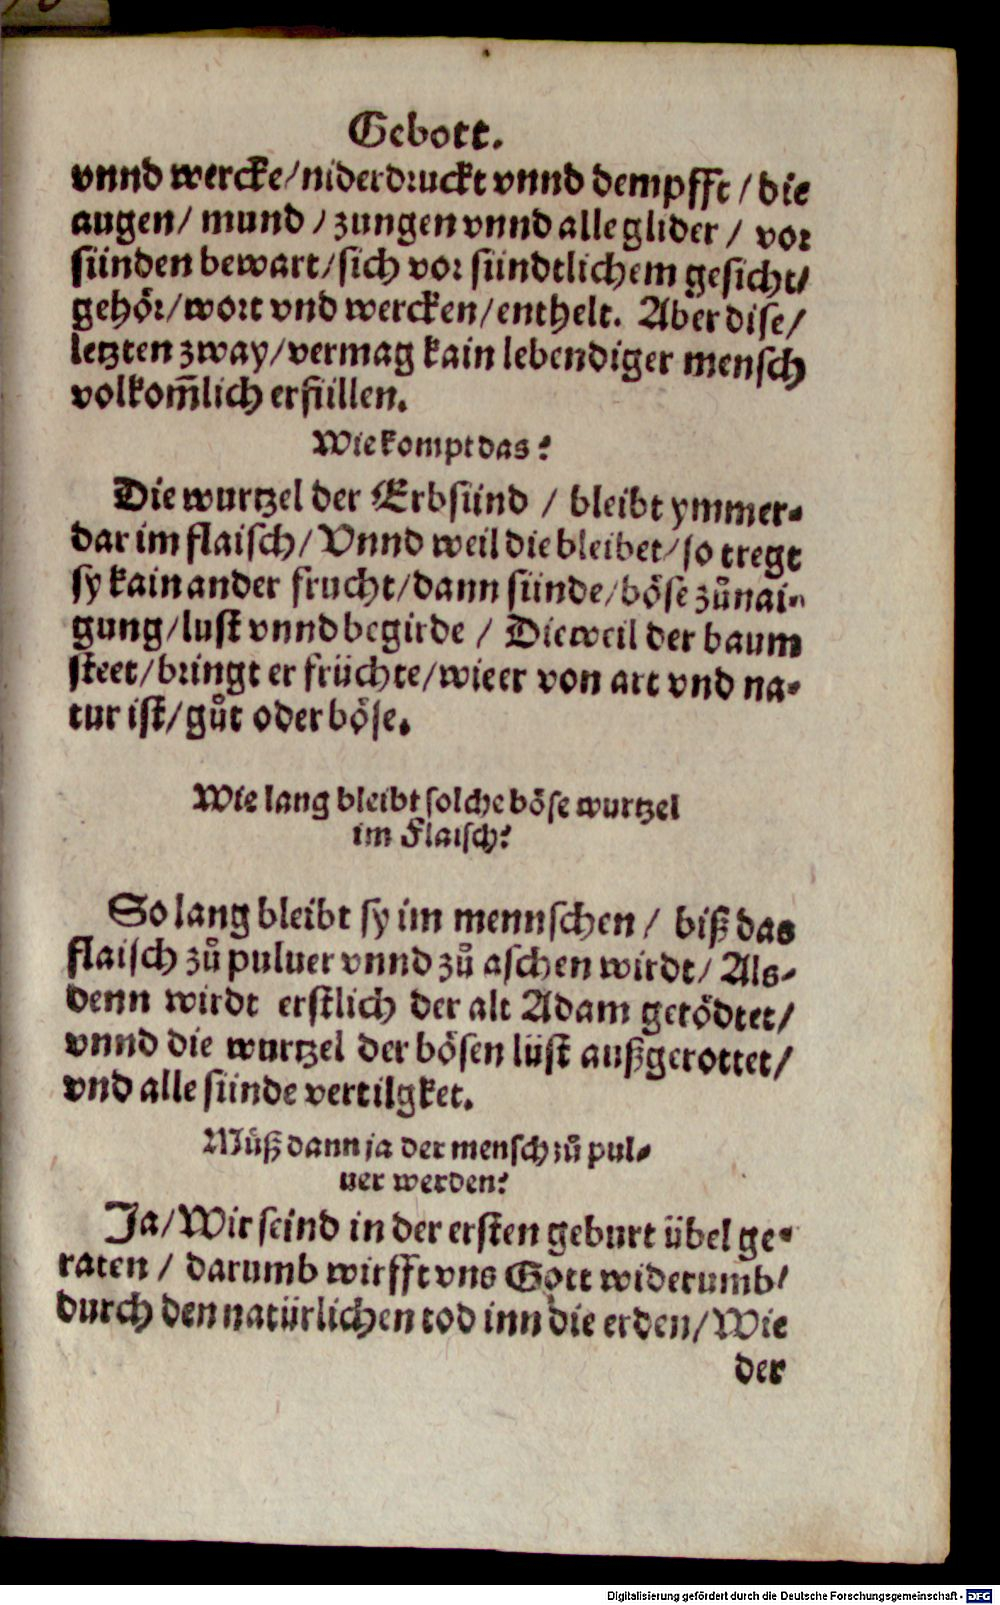 Gebott.
vnnd wercke/niderdruckt vnnd dempfft / die
augen/ mund / zungen vnnd alle glider / vor
sünden bewart/sich vor sündtlichem gesicht/
gehör/wort vnd wercken/enthelt. Aber dise/
letzten zway/vermag kain lebendiger mensch
volkom̄lich erfüllen.
Wie kompt das?
Die wurtzel der Erbsünd / bleibt ymmer-
dar im flaisch/ Vnnd weil die bleibet/so tregt
sy kain ander frucht/dann sünde/böse zůnai-
gung/lust vnnd begirde / Dieweil der baum
steet/bringt er früchte/wie er von art vnd na-
tur ist/gůt oder böse.
Wie lang bleibt solche böse wurtzel
im Flaisch?
So lang bleibt sy im mennschen / biß das
flaisch zů puluer vnnd zů aschen wirdt/ Als-
denn wirdt erstlich der alt Adam getödtet/
vnnd die wurtzel der bösen lüst außgerottet/
vnd alle sünde vertilgket.
Můß dann ja der mensch zů pul-
uer werden?
Ja/Wir seind in der ersten geburt übel ge-
raten / darumb wirfft vns Gott widerumb/
durch den natürlichen tod inn die erden/Wie
der
Digitalisierung gefördert durch die Deutsche Forschungsgemeinschaft - DFG